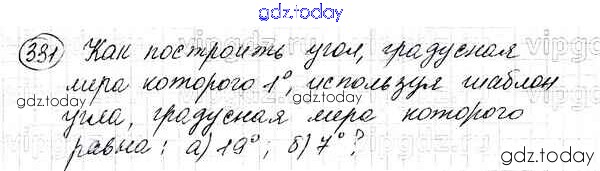 gdz.today
331 Как построить угол, градусная
мера которого 1°, используя шаблон
gdz.today
угла, градусная мера которого
gdz.today
равна: а) 19°; б) 7°?
gdz.today